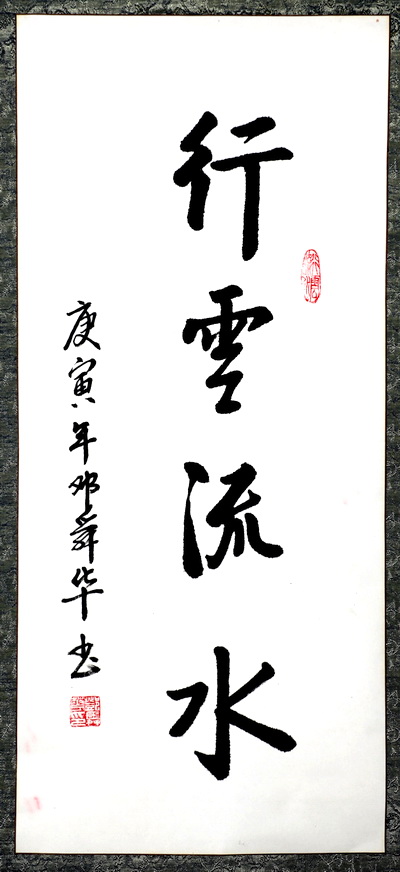 行雲流水
庚寅年邓舜华书